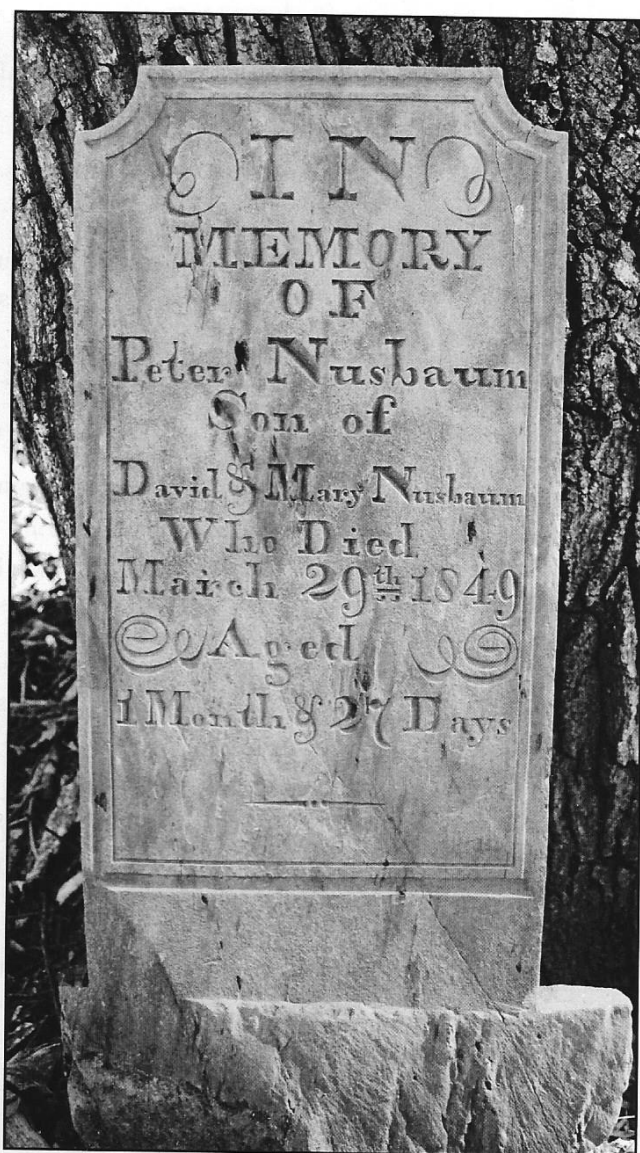 IN
MEMORY
OF
Peter Nusbaum
Son of
David & Mary Nusbaum
Who Died
March 29th 1849
Aged
1 Month & 27 Days